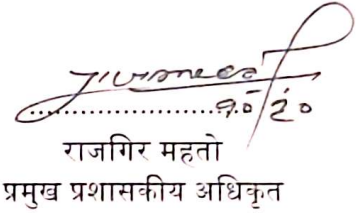 ....................१०।२०
राजगिर महतो
प्रमुख प्रशासकीय अधिकृत